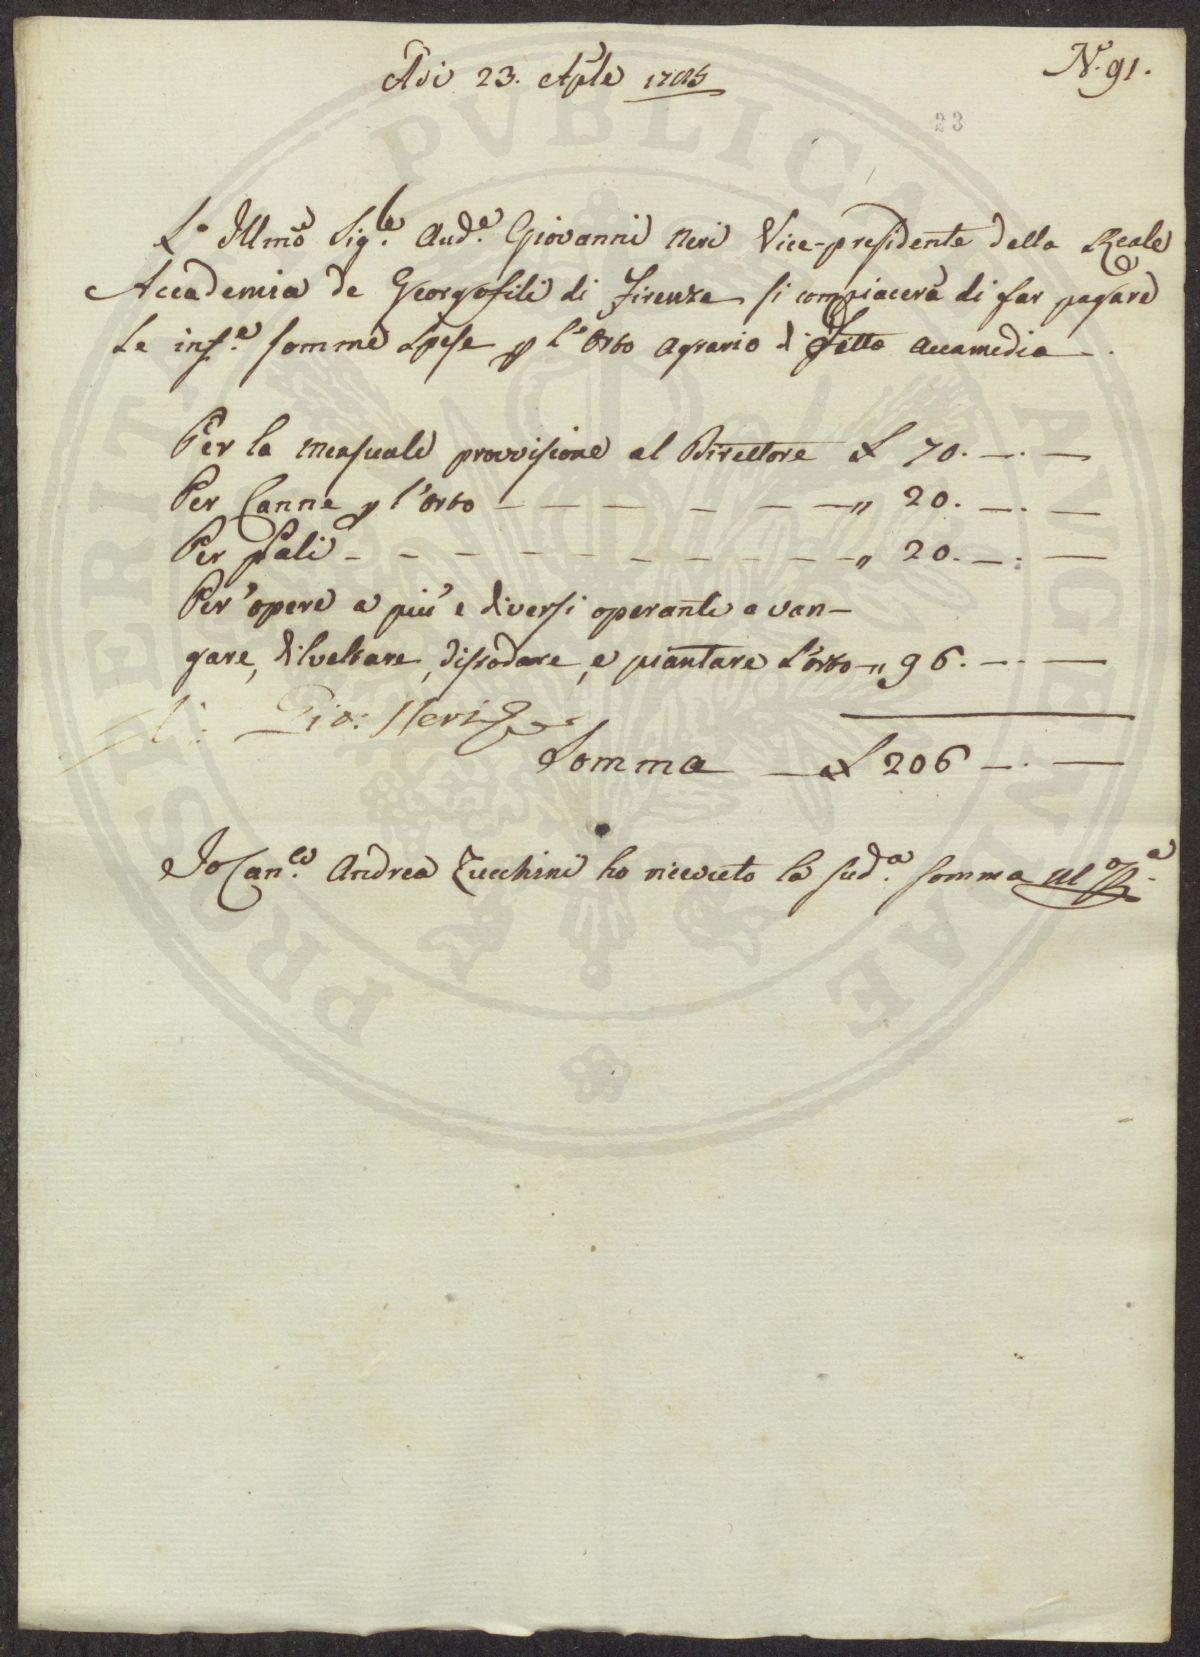 Adi 23. Aple 1785
N. 91.
23
L' Illmo Sigle. Aude. Giovanni Neri Vice-presidente della Reale
Accademia de Georgofili di Firenze si compiacerà di far pagare
Le infe. somme spese p l'Orto agrario di detta accamedia.
Per la mensuale provvisione al Direttore £ 70. —. —
Per Canne p l'orto — — — — — — „ 20. —. —
Per Pali — — — — — — — — „ 20. —. —
Per opere a più e diversi operanti a van-
gare, dilveltare, dissodare, e piantare L'orto „ 96. —. —
Gio: Neri
Somma — £ 206 —. —
Io Canco. Andrea Zucchini ho ricevuto la suda. somma
PROSPERITATI PVBLICAE AVGENDAE